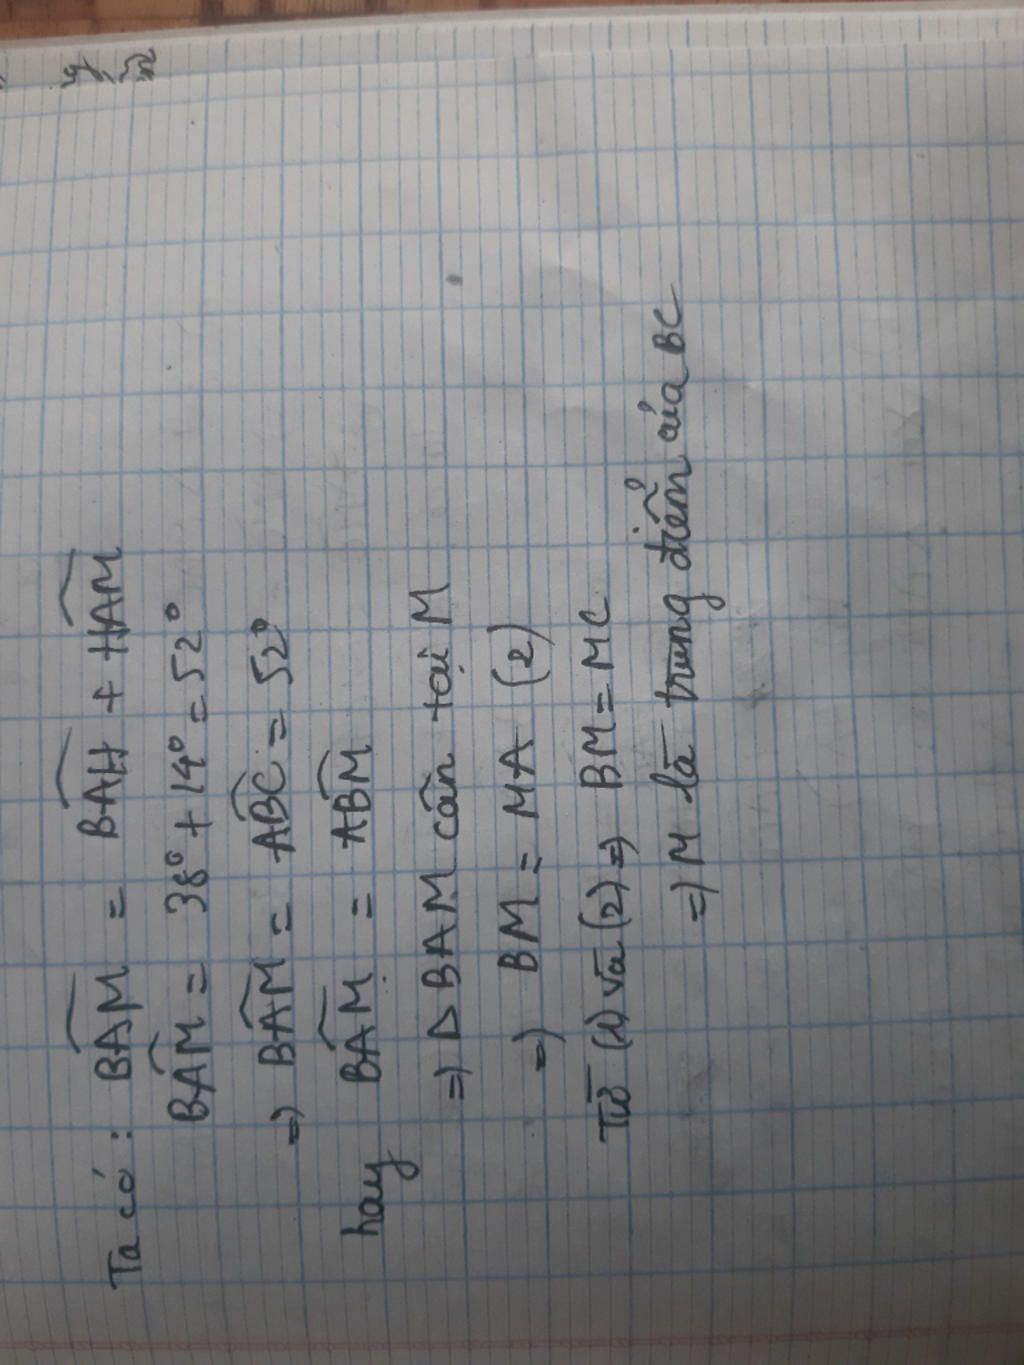 Ta có : BAM = BAH + HAM
BAM = 38° + 14° = 52°
=) BAM = ABC = 52°
hay BAM = ABM
=) Δ BAM cân tại M
=) BM = MA (2)
Từ (1) và (2) =) BM = MC
=) M là trung điểm của BC